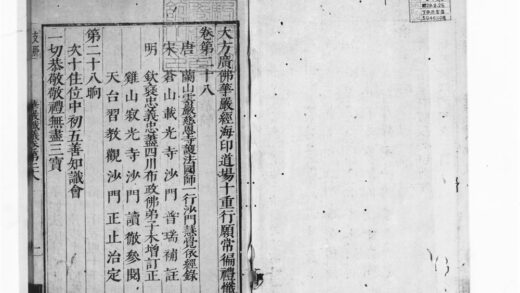 大方廣佛華嚴經海印道場十重行願常徧禮懺
卷第二十八
唐 蘭山雲巖慈恩寺護法國師一行沙門慧覺依經錄
宋 蒼山載光寺沙門普瑞補註
明 欽褒忠義忠藎四川布政佛弟子木增訂正
雞山寂光寺沙門讀徹參閱
天台習教觀沙門正止治定
第二十八晌
次十住位中初五善知識會
一切恭敬敬禮無盡三寶